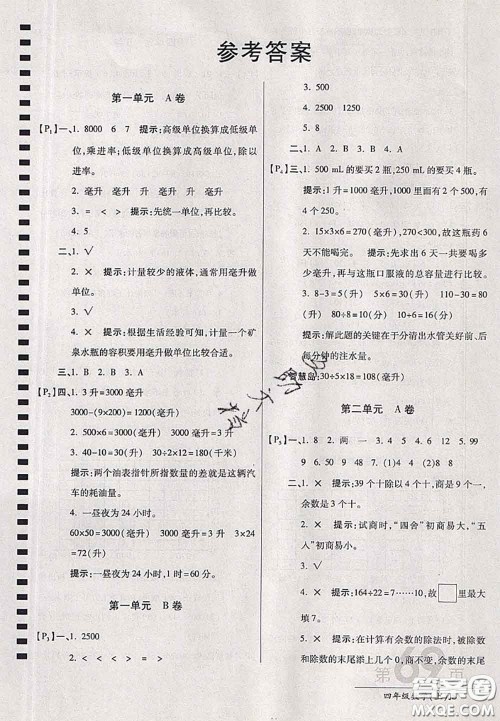 参考答案
第一单元 A卷
【P₁】一、1. 8000 6 7 提示:高级单位换算成低级单
位,乘进率;低级单位换算成高级单位,除以
进率。
2. 毫升 毫升 升 毫升 升
3. = < > 提示:先统一单位,再比较。
4. 5
二、1. √
2. × 提示:计量较少的液体,通常用毫升做
单位。
3. √
4. × 提示:根据生活经验可知,计量一个矿
泉水瓶的容积要用毫升做单位比较合适。
【P₂】四、1. 3升=3000毫升
3000-(9×200)=1200(毫升)
2. 5×600=3000(毫升) 3000毫升=3升
3. 40-10=30(升) 30÷2×12=180(千米)
提示:两个油表指针所指数量的差就是这辆汽
车的耗油量。
4. 一昼夜为24小时。
60×50=3000(毫升) 3000毫升=3升 3×24
=72(升)
提示:一昼夜为24小时。
第一单元 B卷
【P₃】一、1. 2500
2. < < > < > =
3. 500
4. 2500 1250
5. 8
【P₄】三、1. 500 mL的要买2瓶,250 mL的要买4瓶。
提示:1升=1000毫升,1000里面有2个500,有
4个250。
2. 15×3×6=270(毫升),270<300,所以这瓶药6
天不能喝完。 提示:先求出6天一共要喝多
少毫升,再与这瓶口服液的总容量进行比较。
3. 8-3=5(升) 5×6=30(升) 110-30=80
(升) 80÷8=10(分) 10+6=16(分)
提示:解此题的关键在于分清出水管关好前、后
每分钟的注水量。
智慧岛:30÷5×18=108(毫升)
第二单元 A卷
【P₅】一、1. 8 2. 两 一 3. 4 4. 6 12 5. 99
9 6. 9 50 7. (1)8 (2)9
二、1. × 提示:39个十除以4个十,商是9个一,
余数是3个十。
2. × 提示:试商时,“四舍”初商易大,“五
入”初商易小。
3. √
4. × 提示:164÷22=7……10,故□里最大
填7。
5. × 提示:在计算有余数的除法时,被除数和
除数的末尾添上几个0,余数的末尾也要添几个0。
第69页
四年级数学(上)